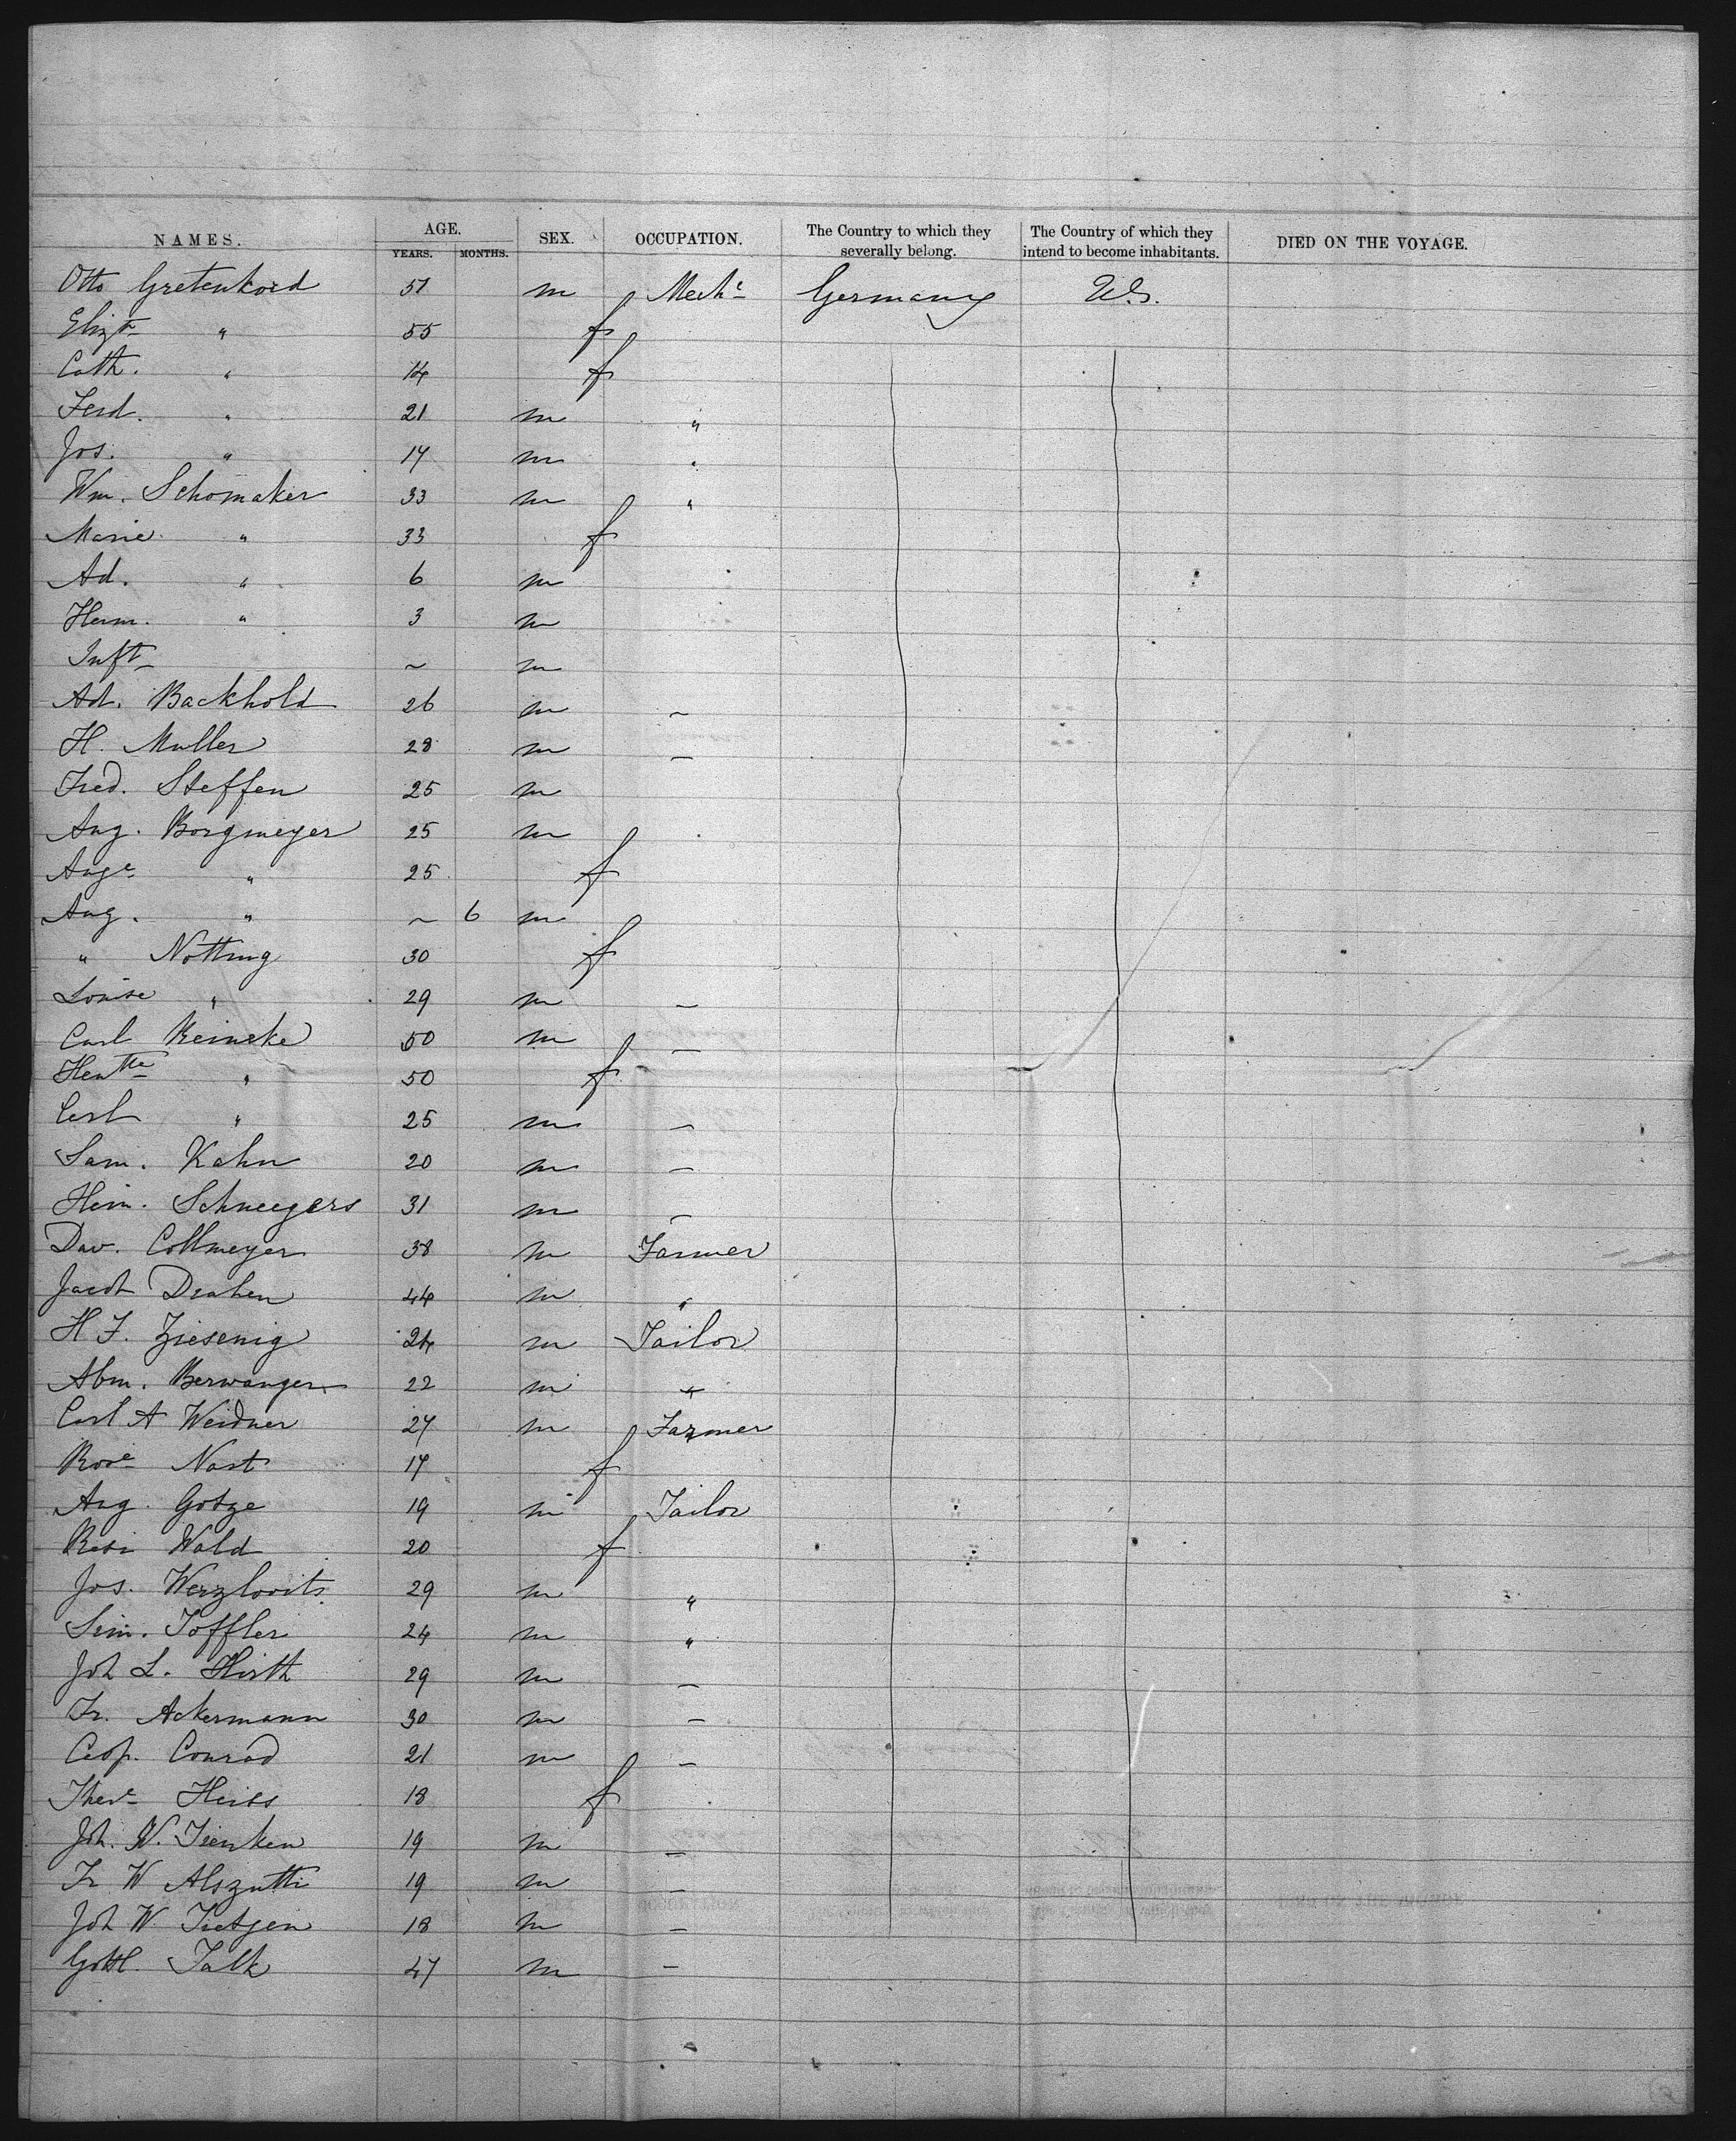 NAMES. AGE. SEX. OCCUPATION. The Country to which they severally belong. The Country of which they intend to become inhabitants. DIED ON THE VOYAGE.
YEARS. MONTHS.
Otto Gretenkord 57 m Mechc Germany U.S.
Elizth " 55 f
Cath. " 14 f
Ferd. " 21 m "
Jos. " 17 m "
Wm. Schomaker 33 m "
Marie " 33 f
Ad. " 6 m
Herm. " 3 m
Inft ~ m
Ad. Backhold 26 m ~
H. Muller 28 m –
Fred. Steffen 25 m
Aug. Borgmeyer 25 m
Auge " 25 f
Aug. " ~ 6 m
" Notting 30 f
Louise " 29 m –
Carl Reineke 50 m –
Hentte " 50 f
Carl " 25 m –
Sam. Kahn 20 m –
Hein. Schneegers 31 m –
Dav. Collmeyer 38 m Farmer
Jacob Drahen 44 m "
H F. Ziesenig 24 m Tailor
Abm. Berwanger 22 m "
Carl A Weidner 27 m Farmer
Rose Nast 17 f
Aug. Gotze 19 m Tailor
Resi Wald 20 f
Jos. Werzlovits 29 m "
Sim. Toffler 24 m "
Joh L. Hirth 29 m –
Fr. Ackermann 30 m –
Conrad 21 m –
There Heiss 18 f
Joh. W. Tienken 19 m –
Fr W 19 m –
Joh W Tietjen 18 m –
Gottl. Falk 47 m –